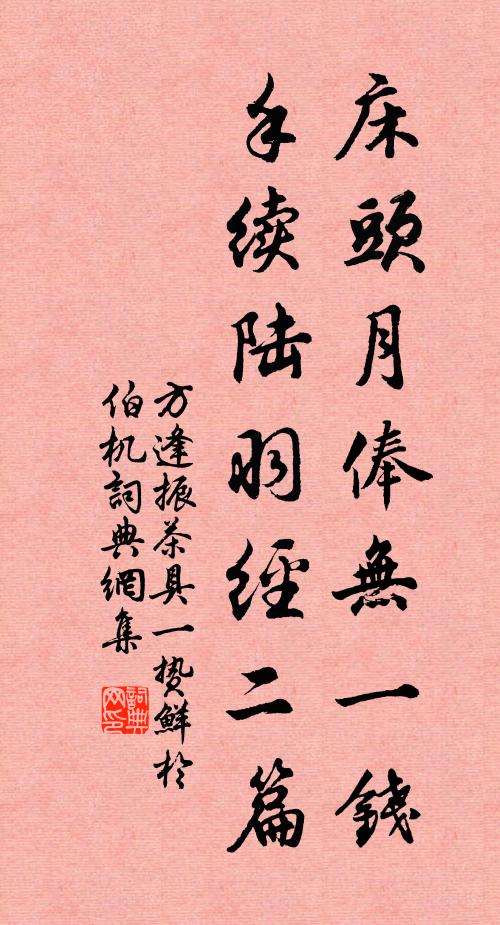 床頭月俸無一錢
手续陆羽經二篇
方逢振茶具一贽鮮於
伯机詞典網集
詞典网印